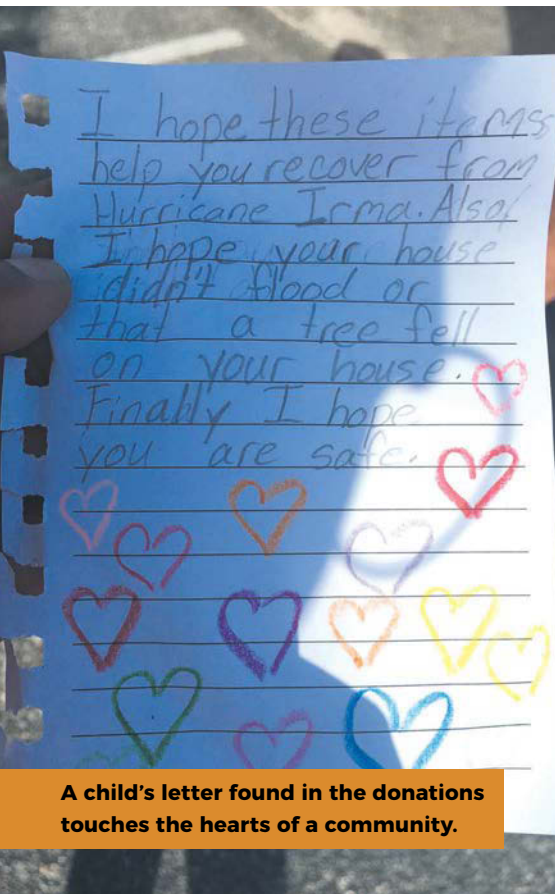 I hope these items
help you recover from
Hurricane Irma. Also,
I hope your house
didn't flood or
that a tree fell
on your house.
Finally I hope
you are safe.
A child's letter found in the donations
touches the hearts of a community.